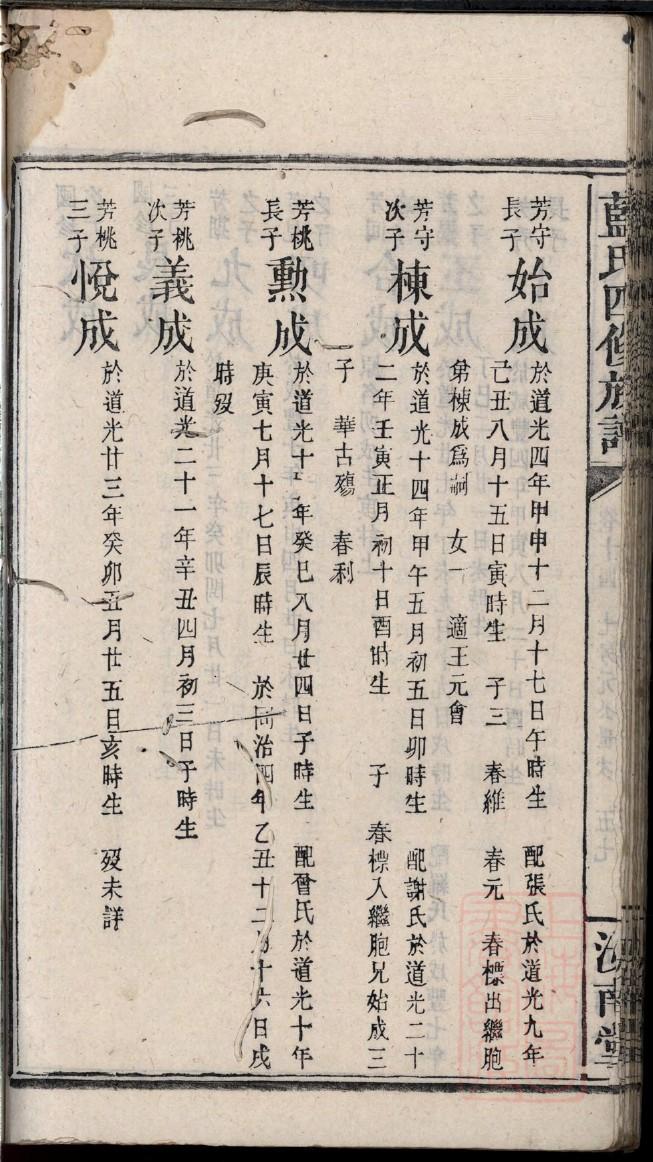 藍氏四修族譜
汝南堂
芳守
長子
始成
於道光四年甲申十二月十七日午時生 配張氏於道光九年
己丑八月十五日寅時生 子三 春維 春元 春標出繼胞
弟棟成為嗣 女一 適王元會
芳守
次子
棟成
於道光十四年甲午五月初五日卯時生 配謝氏於道光二十
二年壬寅正月初十日酉時生 子 春標入繼胞兄始成三
子 華古殤 春利
芳桃
長子
勳成
於道光十 年癸巳八月廿四日子時生 配曾氏於道光十年
庚寅七月十七日辰時生 於同治四年乙丑十二月十六日戌
時歿
芳桃
次子
義成
於道光二十一年辛丑四月初三日子時生
芳桃
三子
悅成
於道光廿三年癸卯五月廿五日亥時生 歿未詳